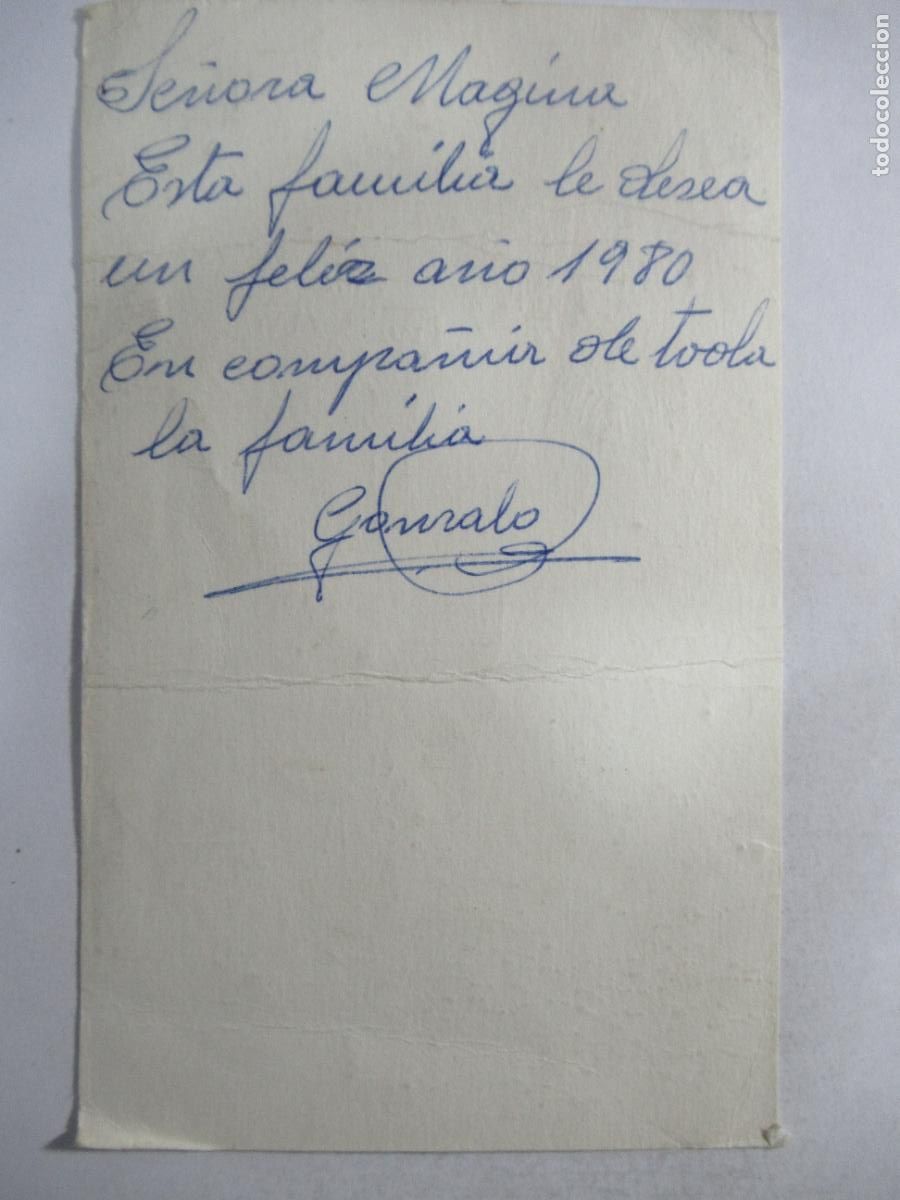 Señora Magina
Esta familia le desea
un felíz año 1980
En compañia de toda
la familia
Gonzalo
todocoleccion